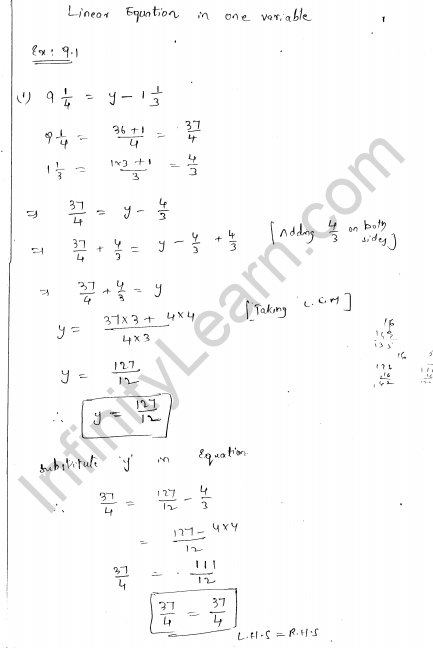 Linear Equation in one variable
Ex: 9.1
(1) 9 1/4 = y - 1 1/3
9 1/4 = 36+1/4 = 37/4
1 1/3 = 1×3+1/3 = 4/3
⇒ 37/4 = y - 4/3
⇒ 37/4 + 4/3 = y - 4/3 + 4/3 [Adding 4/3 on both sides]
⇒ 37/4 + 4/3 = y
y = 37×3 + 4×4/4×3 [Taking L.C.M]
y = 127/12
∴ y = 127/12
substitute 'y' in Equation
∴ 37/4 = 127/12 - 4/3
= 127 - 4×4/12
37/4 = 111/12
37/4 = 37/4
L.H.S = R.H.S
InfinityLearn.com